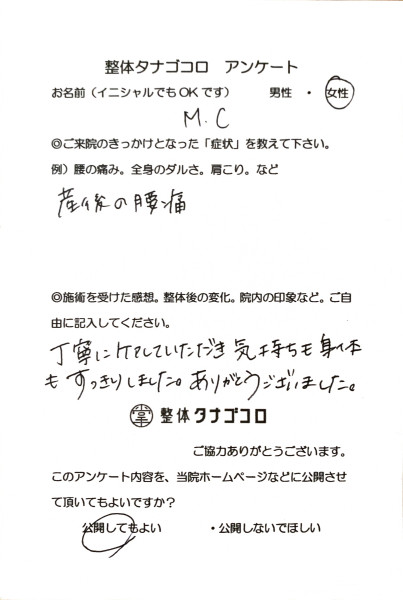 整体タナゴコロ アンケート
お名前（イニシャルでもOKです） 男性 ・ 女性
M.C
◎ご来院のきっかけとなった「症状」を教えて下さい。
例）腰の痛み。全身のダルさ。肩こり。など
産後の腰痛
◎施術を受けた感想。整体後の変化。院内の印象など。ご自
由に記入してください。
丁寧にケアしていただき気持ちも身体
もすっきりしました。ありがとうございました。
掌 整体タナゴコロ
ご協力ありがとうございます。
このアンケート内容を、当院ホームページなどに公開させ
て頂いてもよいですか？
公開してもよい ・公開しないでほしい